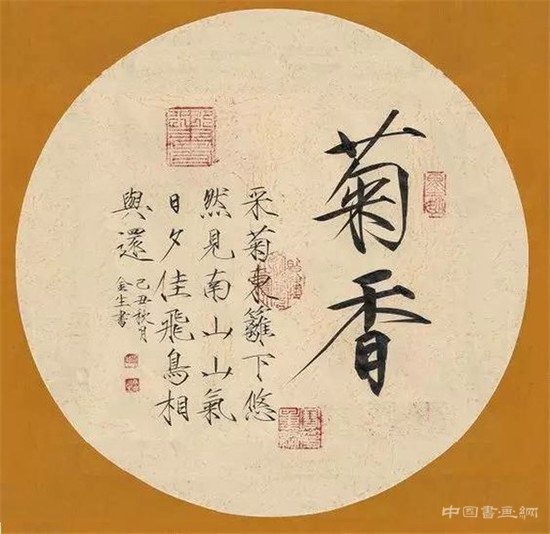 菊香
采菊東籬下悠
然見南山山氣
日夕佳飛鳥相
與還
己丑秋月
金生書
中国書画網